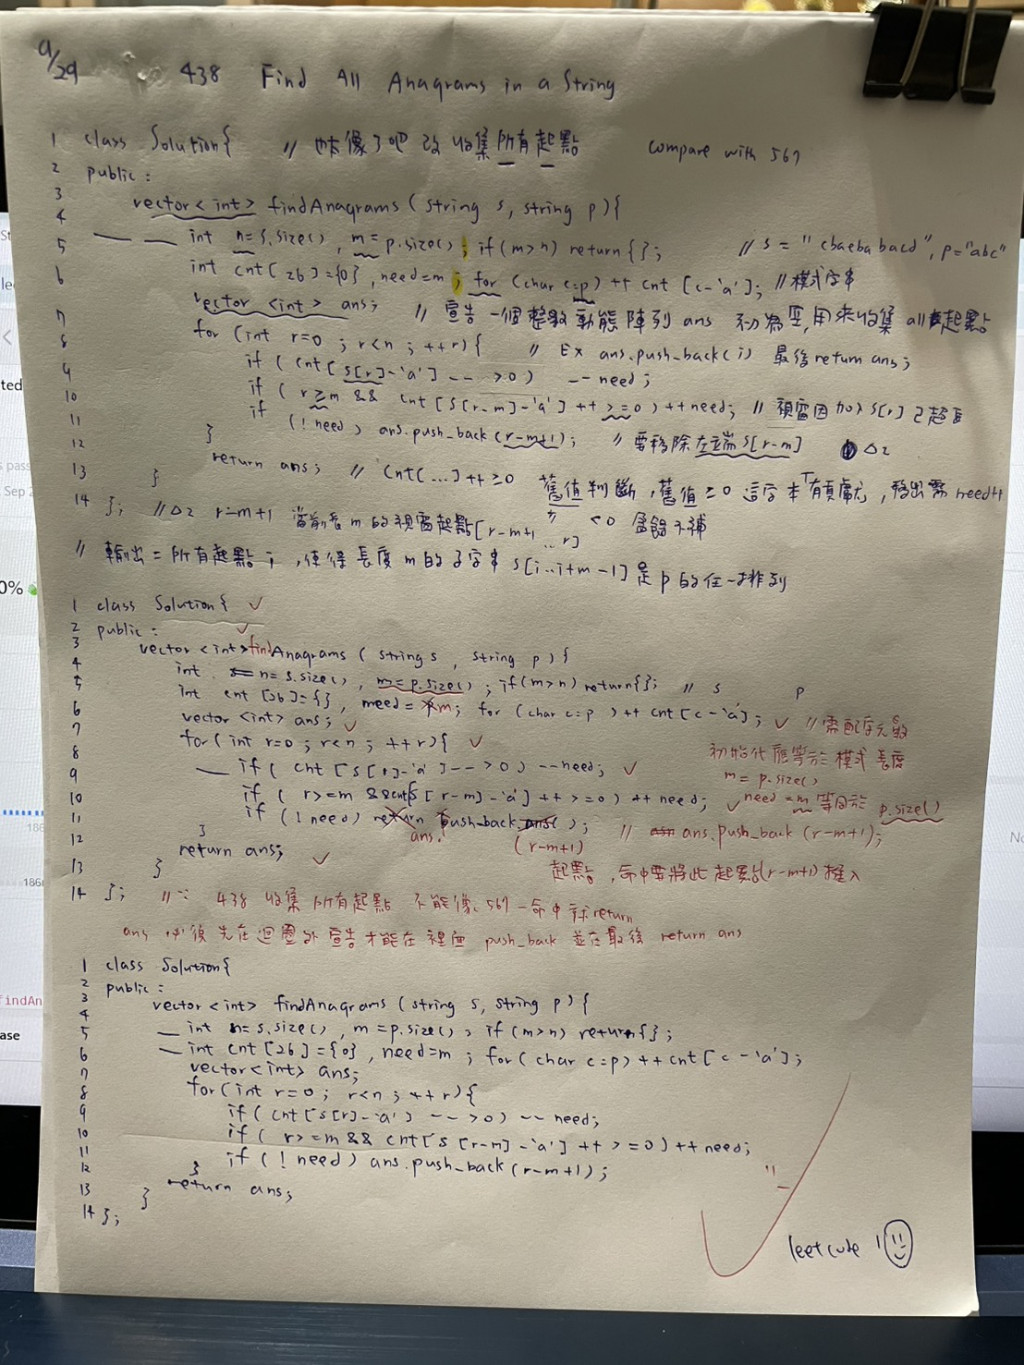 9/29 438 Find All Anagrams in a String
1 class Solution{ // 也太像了吧 改 收集所有起點 compare with 567
2 public:
3 vector<int> findAnagrams (string s, string p){
4
5 int n=s.size(), m=p.size(); if(m>n) return{}; // s = "cbaebabacd", p="abc"
6 int cnt[26]={0}, need=m; for (char c:p) ++ cnt [c-'a']; // 模式字串
7 vector <int> ans; // 宣告一個整數動態陣列 ans 初為空,用來收集 all 起點
8 for (int r=0; r<n; ++r){ // Ex ans.push_back(i) 最後 return ans;
9 if (cnt[s[r]-'a'] -- >0) --need;
10 if (r≥m && cnt[s[r-m]-'a']++ >=0) ++need; // 視窗因加入 s[r] 已超長
11 if (!need) ans.push_back(r-m+1); // 要移除左端 s[r-m] Δ2
12 }
return ans; // cnt[...]++≥0 舊值判斷,舊值≥0 這字本「有貢獻」,移出需 need++
13 } " <0
14 }; // Δ2 r-m+1 當前長 m 的視窗起點[r-m+1...r]
// 輸出=所有起點 i,使得長度 m 的子字串 s[i...i+m-1]是 p 的任一排列
1 class Solution{ ✓
2 public: ✓
3 vector<int> findAnagrams (string s, string p){
4 int n=s.size(), m=p.size(); if(m>n) return{}; // s p
5 int cnt[26]={}, need=m; for (char c:p) ++ cnt[c-'a']; ✓ // 需配字元數
6 vector<int> ans; ✓ 初始化應等於模式長度
7 for(int r=0; r<n; ++r){ ✓ m = p.size()
8 if (cnt[s[r]-'a']-->0) --need; ✓ need=m 等同於 p.size()
9 if (r>=m &&cnt[s[r-m]-'a']++>=0) ++need; ✓
10 if (!need) return push-back ans( ); // ans.push_back(r-m+1);
11 } ans. (r-m+1)
12 return ans; ✓ 起點,命中要將此起點(r-m+1)推入
13 }
14 }; // ∵ 438 收集所有起點 不能像 567 一命中就return
ans 必須先在迴圈外宣告才能在裡面 push_back 並在最後 return ans
1 class Solution{
2 public:
3 vector<int> findAnagrams (string s, string p){
4
5 int n=s.size(), m=p.size(); if(m>n) return{};
6 int cnt[26]={0}, need=m; for(char c:p)++cnt[c-'a'];
7 vector<int> ans;
8 for(int r=0; r<n; ++r){
9 if(cnt[s[r]-'a'] -- >0) --need;
10 if (r>=m && cnt[s[r-m]-'a']++>=0)++need;
11 if (!need) ans.push_back(r-m+1);
12 }
13 return ans;
}
14 };
leetcode